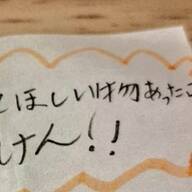 てほしい物あったこ
けん!!